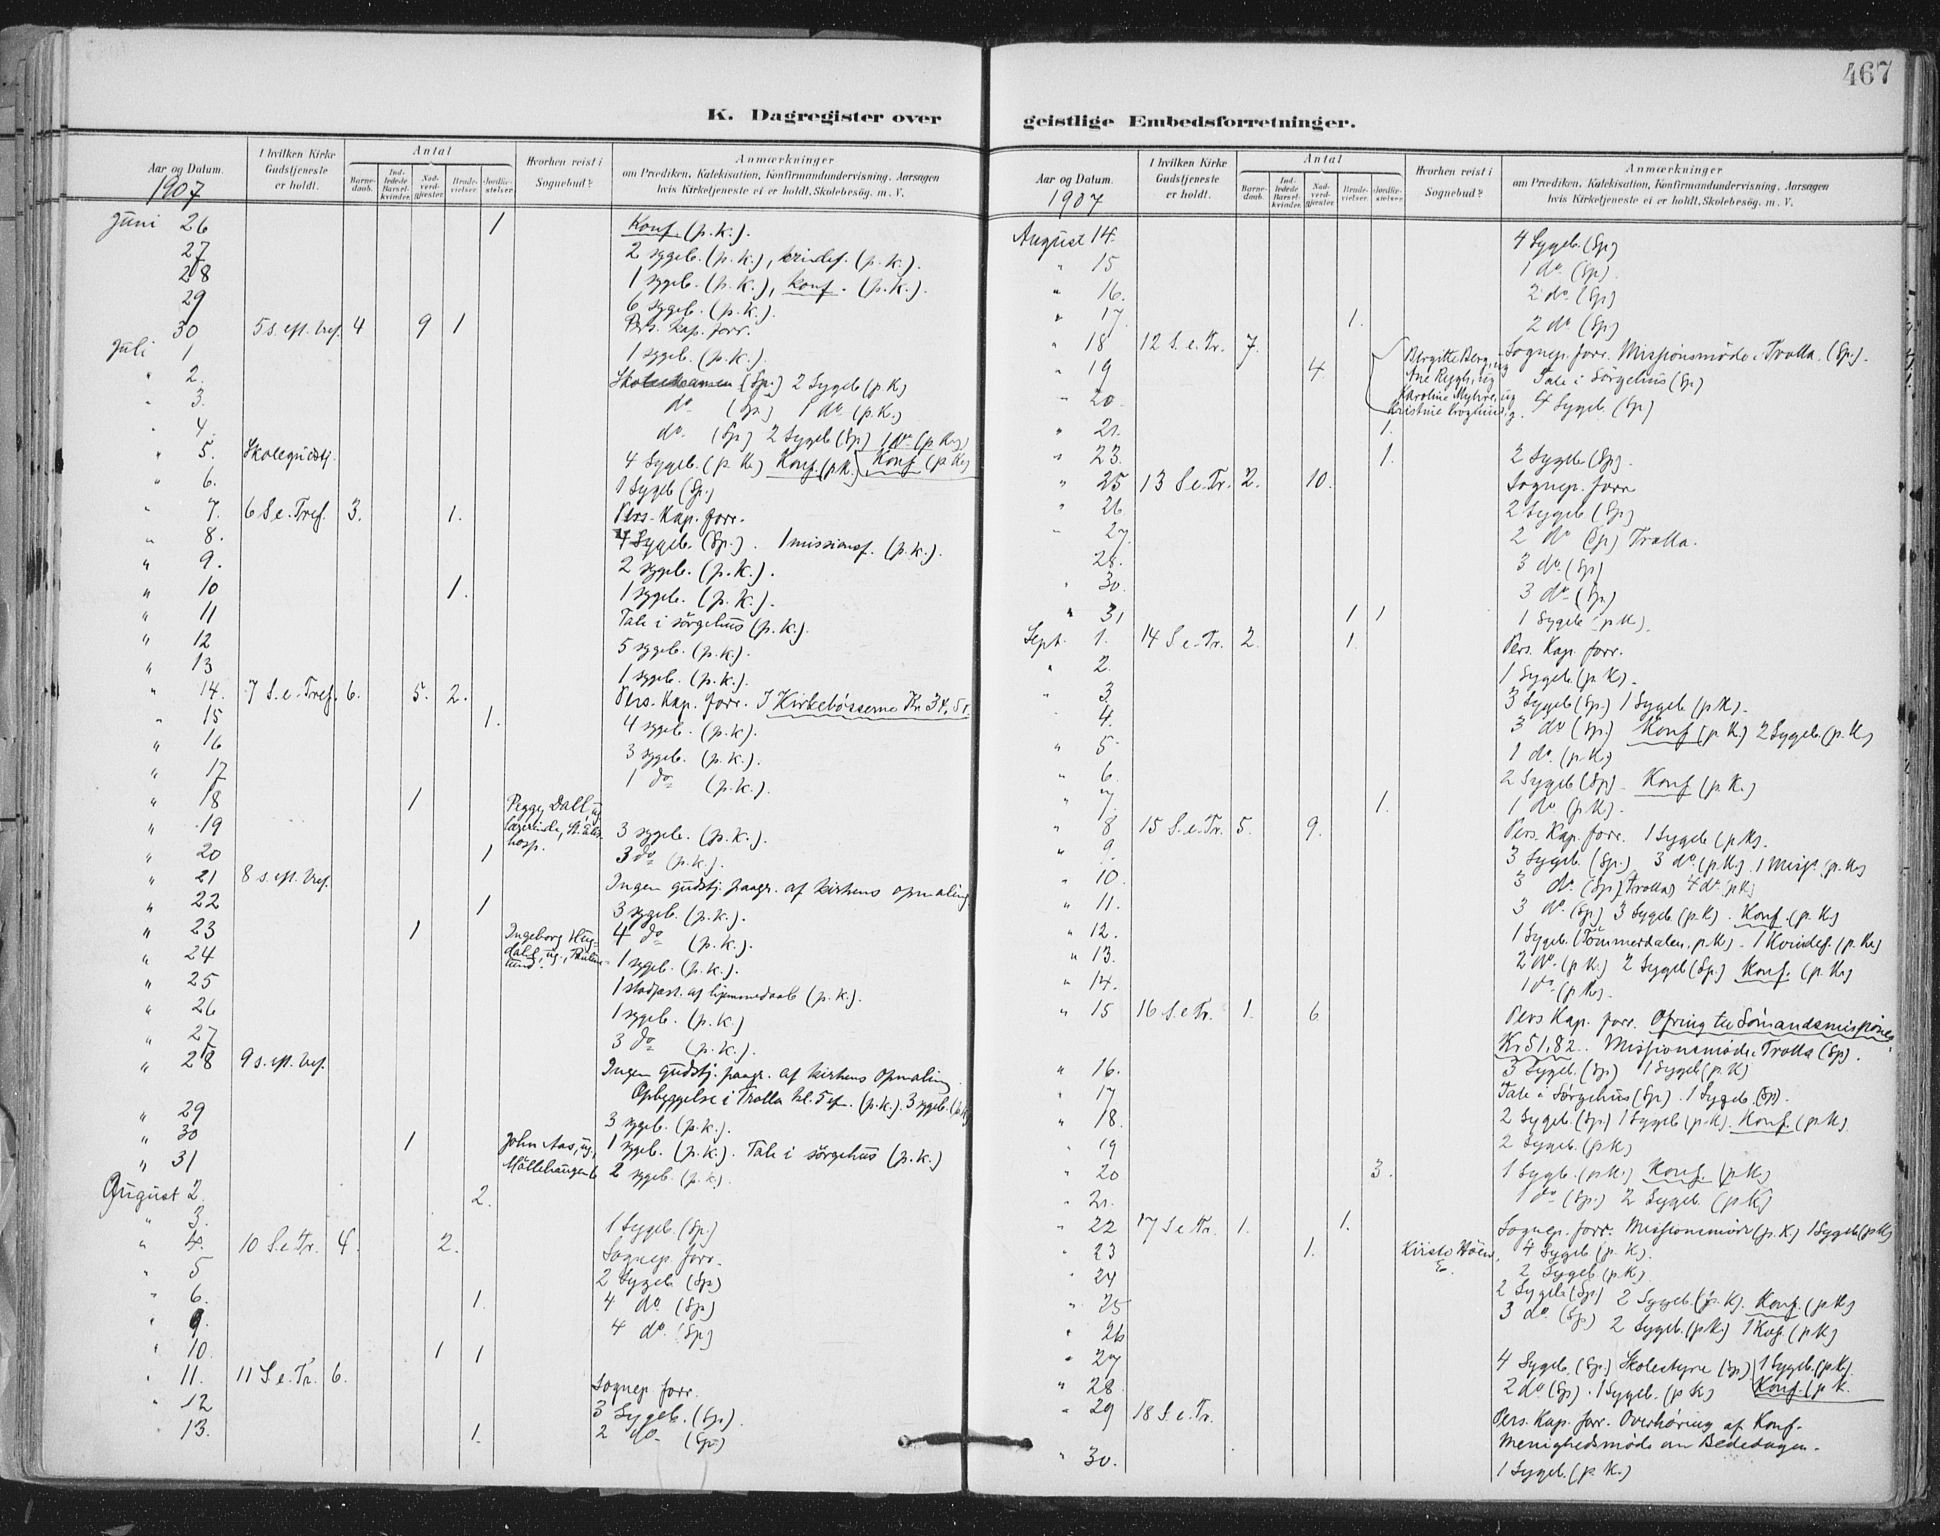 467
K. Dagregister over
Aar og Datum.
I hvilken Kirke Gudstjeneste er holdt.
Antal
Barnedaab.
Indledede Barselkvinder.
Nadverdgjester.
Brudevielser.
Jordfæstelser.
Hvorhen reist i Sognebud?
Anmærkninger
om Prædiken, Katekisation, Konfirmandundervisning, Aarsagen
hvis Kirketjeneste ei er holdt, Skolebesög. m. V.
1907
Juni 26 1 Konf. (p.k.).
27 2 sygeb. (p.k.), kvindef. (p.k.).
28 1 sygeb. (p.k.), konf. (p.k.).
29 6 sygeb. (p.k.).
30 5 s. eft. tref. 4 9 1 Pers. kap. forr.
Juli 1 1 sygeb. (p.k.).
" 2. Skoleeksamen (Sp.) 2 Sygeb (p K)
" 3. do (Sp) 1 do (p.K.)
" 4. do. (Sp) 2 Sygeb (Sp) 1 do (p K)
" 5. Skolegudstj. 4 Sygeb. (p K.) Konf. (p K.) Konf (p K)
" 6. 1 Sygeb (Sp.)
" 7. 6 S. e. Tref. 3. 1. Pers. Kap. forr.
" 8. 4 Sygeb. (Sp.). 1 missionsf. (p.k.).
" 9. 2 sygeb. (p.k.).
" 10 1. 1 sygeb. (p.k.).
" 11 Tale i sörgehus (p.k.).
" 12 5 sygeb. (p.k.).
" 13 1 sygeb. (p.k.).
" 14. 7 S. e. Tref. 6. 5. 2. Pers. Kap. forr. I Kirkebösserne Kr. 34.51.
" 15 1. 4 sygeb. (p.k).
" 16 3 sygeb. (p.k.).
" 17 1 do (p.k.).
" 18 1 Peggy Dahl, ug.
" 19 3 sygeb. (p.k.).
hosp.
" 20 1 3 do (p.k.).
" 21 8 s. eft. tref. Ingen gudstj. paagr. af kirkens opmaling.
" 22 1 3 sygeb. (p.k.).
" 23 1 Ingeborg Hug- 4 do (p.k.).
" 24 dahl, ug., 1 sygeb. (p.k.).
" 25 1 stadfæst. af hjemmedaab (p.k.).
" 26 1 sygeb. (p.k.)
" 27 3 do (p.k.).
" 28 9 s. eft. tref. Ingen gudstj. paagr. af kirkens opmaling.
Opbyggelse i Trolla kl. 5 ef. (p.k.). 3 sygeb. (p.k.)
" 29 3 sygeb. (p.k.).
" 30 1 John Aas, ug., 1 sygeb. (p.k.). Tale i sörgehus (p.k.)
" 31 Möllehaugen 6 2 sygeb. (p.k.).
August 2. 2.
" 3. 1 Sygeb. (Sp)
" 4. 10 S. e. Tr. 4. 2. Sognep. forr.
" 5 2 Sygeb (Sp)
" 6. 1. 4 do (Sp)
" 9. 4 do. (Sp)
" 10. 1 1
" 11. 11 S. e. Tr. 6. Sognep. forr.
" 12 3 Sygeb. (Sp).
" 13. 1. 2 do (Sp)
geistlige Embedsforretninger.
Aar og Datum.
I hvilken Kirke Gudstjeneste er holdt.
Antal
Barnedaab.
Indledede Barselkvinder.
Nadverdgjester.
Brudevielser.
Jordfæstelser.
Hvorhen reist i Sognebud?
Anmærkninger
om Prædiken, Katekisation, Konfirmandundervisning, Aarsagen
hvis Kirketjeneste ei er holdt, Skolebesög. m. V.
1907
August 14. 4 Sygeb. (Sp)
" 15 1 do (Sp).
" 16. 2 do (Sp)
" 17. 1. 2 do (Sp)
" 18 12 S. e. Tr. 7. Birgitte Berg, ug Sognep. forr. Missionsmöde i Trolla. (Sp).
" 19 4. Ane ug Tale i Sörgehus (Sp)
" 20 Karoline Myhre, ug 4 Sygeb. (Sp)
Kristine ug.
" 21. 1.
" 23. 1. 2 Sygeb (Sp).
" 25 13 S. e. Tr. 2. 10. Sognep. forr
" 26 2 Sygeb (Sp)
" 27 2 do (Sp) Trolla.
" 28. 3 do (Sp)
" 30. 3 do (Sp)
" 31 1 1 1 Sygeb (p K).
Sept. 1. 14 S. e. Tr. 2. 1. Pers. Kap. forr.
" 2. 1 Sygeb. (p K).
" 3. 3 Sygeb (Sp.) 1 Sygeb (p K).
" 4. 3 do (Sp.) Konf. (p K.) 2 Sygeb. (p. K)
" 5. 1 do. (p K)
" 6. 2 Sygeb (Sp). Konf (p K.)
" 7. 1. 1 do (p K).
" 8 15 S. e. Tr. 5. 9. Pers. Kap. forr. 1 Sygeb (p K).
" 9. 3 Sygeb. (Sp.) 3 do (p K.) 1 Misf. (p. K)
" 10. 3 do. (Sp) Trolla) 4 do (p K)
" 11. 3 do. (Sp) 3 Sygeb (p. K). Konf. (p. K)
" 12. 1 Sygeb. (Tömmerdalen, p K). 1 Kvindef. (p. K)
" 13. 2 do. (p K.) 2 Sygeb (Sp.) Konf. (p. K)
" 14. 1 do (p K).
" 15 16 S. e Tr. 1. 6 Pers Kap. forr. Ofring til Sömandsmissionen
Kr 51,82. Missionsmöde i Trolla (Sp).
" 16. 3 Sygeb. (Sp) 1 Sygeb (p. K)
" 17 Tale i Sörgehus (Sp). 1 Sygeb. (Sp).
" 18. 2 Sygeb. (Sp) 1 Sygeb (p K). Konf. (p K).
" 19 2 Sygeb. (p K)
" 20 3. 1 Sygeb. (p K.) Konf. (p K)
" 21. 1 do (Sp.) 2 Sygeb. (p K)
" 22 17 S. e Tr. 1. 1. Sognep. forr. Missionsmöde (p. K.) 1 Sygeb (p K)
" 23 1. 4 Sygeb (p. K).
" 24 2 Sygeb. (p K)
" 25 2 Sygeb (Sp) 2 Sygeb. (p. K). Konf. (p K)
" 26 3 do. (Sp) 2 Sygeb. (p K) 1 (p K)
" 27 4 Sygeb. (Sp.) Skolestyre (Sp) 1 Sygeb. (p K).
" 28. 2 do (Sp). 1 Sygeb. (p K) Konf. (p K.
" 29 18 S. e. Tr. Pers. Kap. forr. Overhöring af Konf.
Menighedsmöde om Bededagen.
" 30. 1 Sygeb. (p. K.)